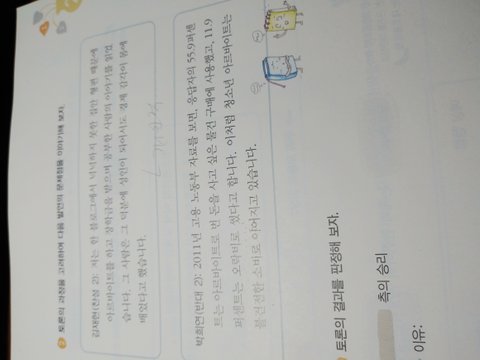 토론의 과정을 고려하여 다음 발언의 문제점을 이야기해 보자.
김재현(찬성 2): 저는 한 블로그에서 넉넉하지 못한 집안 형편 때문에
아르바이트를 하고 장학금을 받으며 공부한 사람의 이야기를 읽었
습니다. 그 사람은 그 덕분에 성인이 되어서도 경제 감각이 몸에
배었다고 했습니다.
박희연(반대 2): 2011년 고용 노동부 자료를 보면, 응답자의 55.9퍼센
트는 아르바이트로 번 돈을 사고 싶은 물건 구매에 사용했고, 11.9
퍼센트는 오락비로 썼다고 합니다. 이처럼 청소년 아르바이트는
불건전한 소비로 이어지고 있습니다.
토론의 결과를 판정해 보자.
측의 승리
이유: